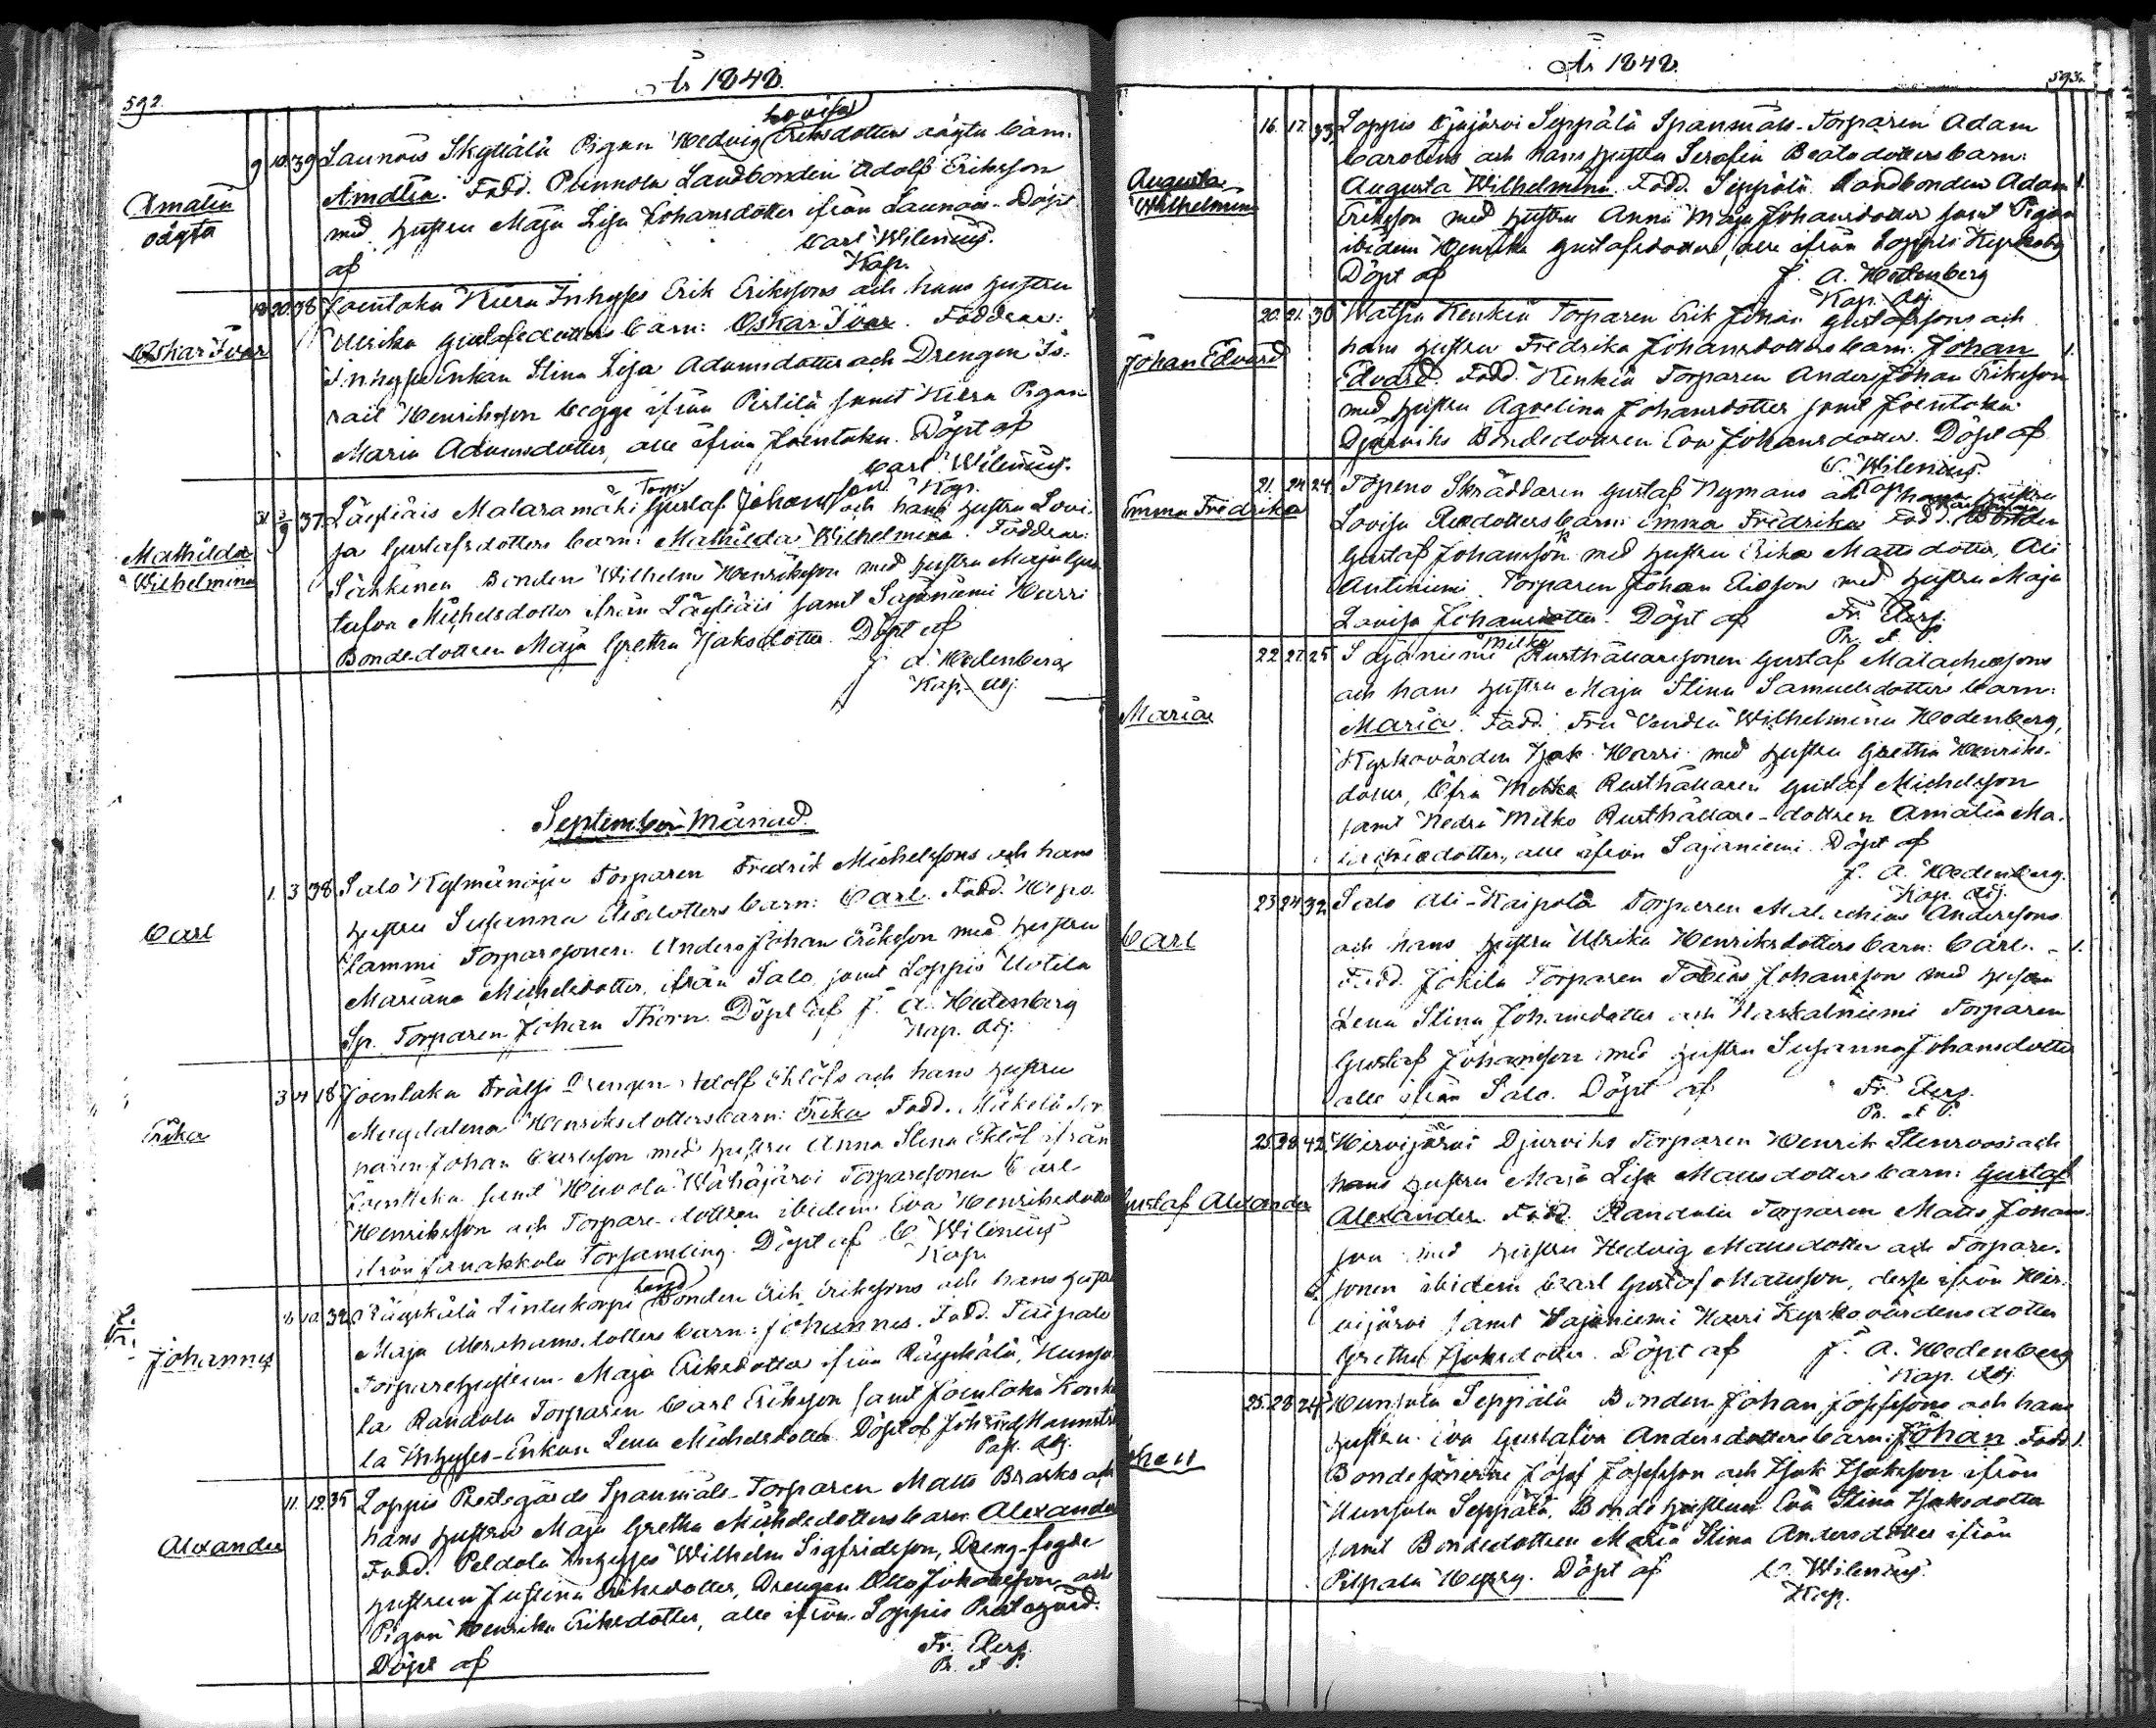 592.
År 1848.
Lovisa
Amalia
oägta
9 10 39 Launois Skyttälä Pigan Hedvig Eriksdotters oägta barn:
Amalia. Fadd. Punnola Landbonden Adolf Eriksson
med hustru Maja Lisa Johansdotter ifrån Launois. Döpt
af Carl Wilenius.
Kap.
Oskar Ivar
19 20 38 Joentaka Kiera Inhyses Erik Erikssons och hans hustru
Ulrika Gustafsdotters barn: Oskar Ivar. Faddrar:
Inhyses Enkan Stina Lisa Adamsdotter och Drengen Is-
rail Henriksson begge ifrån Pirtilä samt Kiera Pigan
Maria Adamsdotter, alle ifrån Joentaka. Döpt af
Carl Wilenius.
Kap.
Torp.
Mathilda
Wilhelmina
31 3/9 37 Läyliäis Mataramäki Gustaf Johansson och hans hustru Lovi-
sa Gustafsdotters barn: Mathilda Wilhelmina. Faddrar:
Särkinen Bonden Wilhelm Henriksson med hustru Maja Gus-
tafva Michelsdotter ifrån Läyliäis samt Sajaniemi Harri
Bonde-dottren Maja Gretha Isaksdotter. Döpt af
J. A. Hedenberg
Kap. Adj.
September Månad.
Carl
1. 3 38 Salo Kylmänoja Torparen Fredrik Michelssons och hans
hustru Susanna dotters barn: Carl. Fadd. Hepo-
lammi Torparesonen Anders Johan Eriksson med hustru
Mariana Michelsdotter, ifrån Salo samt Loppis Uotila
Sp. Torparen Johan Thorn. Döpt af J. A. Hedenberg
Kap. Adj.
Erika
3 4 18 Joentaka Drengen Adolf Eklöfs och hans hustru
Magdalena Henriksdotters barn: Erika Fadd. Mickelä Tor-
paren Johan Carlsson med hustru Anna Stina Eklöf ifrån
Joentaka samt Hievola Wähäjärvi Torparesonen Carl
Henriksson och Torpare-dottren ibidem Eva Henriksdotter
ifrån Janakkala Församling. Döpt af C. Wilenius
Kap.
Land
Johannes
8 10 32 Räyskälä Lintukorpi Bonden Erik Erikssons och hans hustru
Maja Abrahamsdotters barn: Johannes. Fadd. Taipale
Torparehustrun Maja Eriksdotter ifrån Räyskälä, Hunsa-
la Randala Torparen Carl Eriksson samt Joentaka Konki-
la Inhyses-Enkan Lena Michelsdotter. Döpt af
Past. Adj.
Alexander
11. 12 35 Loppis Prestegårds Spannmåls-Torparen Matts Brasks och
hans hustru Maja Gretha Michelsdotters barn Alexander
Fadd. Peldola Inhyses Wilhelm Sigfridsson, Dreng-fogde
hustrun Justina Eriksdotter, Drengen Otto Johansson och
Pigan Henrika Eriksdotter, alle ifrån Loppis Prestegård.
Döpt af Fr. Elers.
Pr. et P.
År 1848.
593.
Augusta
Wilhelmina
16. 17. 33. Loppis Ojajärvi Seppälä Spanmåls-Torparen Adam
Carolins och hans hustru Serafia Beatadotters barn:
Augusta Wilhelmina. Fadd. Seppälä Landbonden Adam
Eriksson med hustru Anna Maja Johansdotter samt Pigan
ibidem Henrika Gustafsdotter, alle ifrån Loppis Kyrkoby
Döpt af J. A. Hedenberg
Kap. Adj.
Johan Edvard
20. 21. 30 Watsia Kenkiä Torparen Erik Johan Gustafssons och
hans hustru Fredrika Johansdotters barn: Johan
Edvard. Fadd. Kenkiä Torparen Anders Johan Eriksson
med hustru Agvelina Johansdotter samt Joentaka
Djurviks Bondedottren Eva Johansdotter. Döpt af
C. Wilenius.
Kap.
Emma Fredrika
21. 24 24. Topeno Skräddaren Gustaf Nymans och hans hustru
Lovisa dotters barn: Emma Fredrika Fadd. Bonden
Gustaf Johansson med hustru Erika Mattsdotter, Ali
Antiniemi Torparen Johan Ericsson med hustru Maja
Lovisa Johansdotter. Döpt af Fr. Elers.
Pr. et P.
Milko
Maria
22 27. 25 Sajaniemi Rusthållaresonen Gustaf Malachiassons
och hans hustru Maja Stina Samuelsdotters barn:
Maria. Fadd. Fru Vendla Wilhelmina Hedenberg,
Kyrkovärden Isak Harri med hustru Gretha Henriks-
dotter, Öfra Milko Rusthållaren Gustaf Michelsson
samt Nedra Milko Rusthållare-dottren Amalia Ma-
lachiedotter, alle ifrån Sajaniemi. Döpt af
J. A. Hedenberg.
Kap. Adj.
Carl
23 24 32 Salo Ali-Kaipola Torparen Malachias Anderssons
och hans hustru Ulrika Henriksdotters barn: Carl.
Fadd. Jokila Torparen Tobias Johansson med hustru
Lena Stina Johansdotter och Haskalniemi Torparen
Gustaf Johansson med hustru Susanna Johansdotter
alle ifrån Salo. Döpt af Fr. Elers.
Pr. et P.
Gustaf Alexander
25. 28 42. Hirvijärvi Djurviks Torparen Henrik Stenroos och
hans hustru Maja Lisa Mattsdotters barn: Gustaf
Alexander. Fadd. Randala Torparen Matts Johans-
son med hustru Hedvig Mattsdotter och Torpare-
sonen ibidem Carl Gustaf Mattsson, desse ifrån Hir-
vijärvi samt Sajaniemi Harri Kyrkovärdensdotter
Gretha Isaksdotter. Döpt af J. A. Hedenberg
Kap. Adj.
25. 28 24 Hunsala Seppälä Bonden Johan Josefssons och hans
hustru Eva Gustafva Andersdotters barn: Johan. Fadd.
Bondesönerne Josef Josefsson och Isak Isaksson ifrån
Hunsala Seppälä, Bonde hustrun Eva Stina Isaksdotter
samt Bondedottren Maria Stina Andersdotter ifrån
Pilpala. Döpt af C. Wilenius.
Kap.